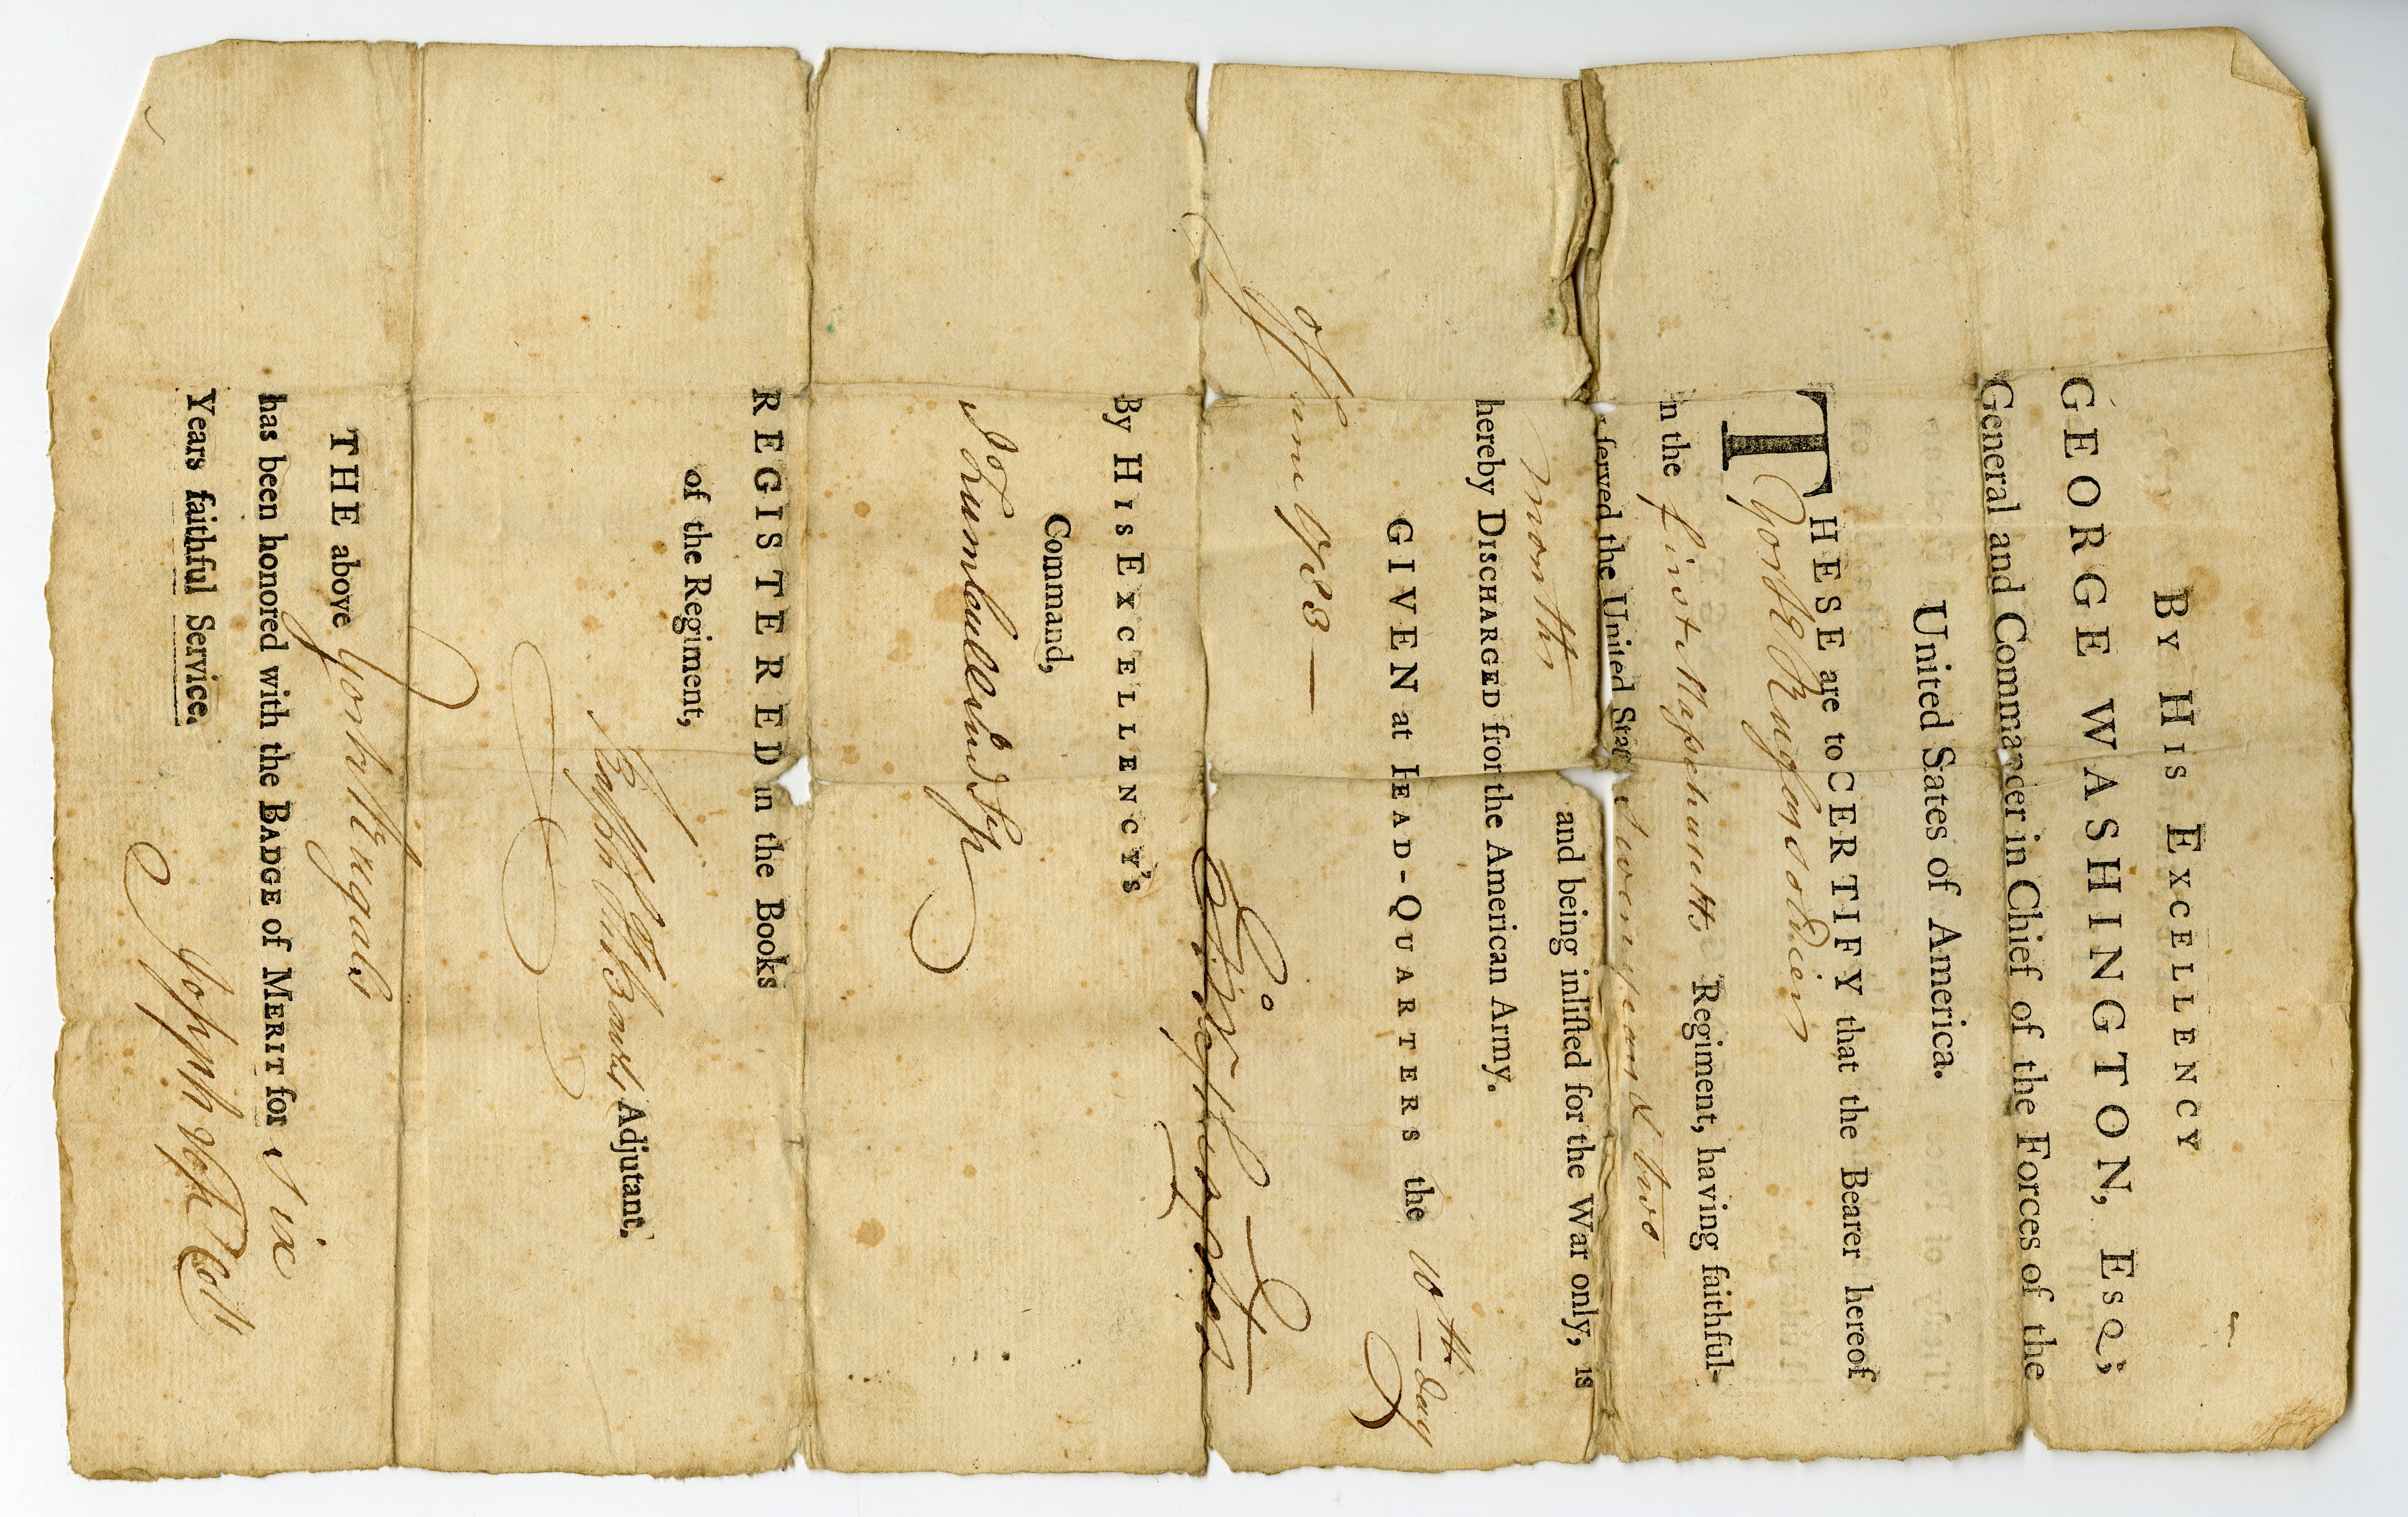 BY HIS EXCELLENCY
GEORGE WASHINGTON, ESQ;
General and Commander in Chief of the Forces of the
United States of America.
THESE are to CERTIFY that the Bearer hereof
York soldier
in the first Massachusetts Regiment, having faithful-
ly ſerved the United Stat seven years & two
months and being inliſted for the War only, is
hereby DISCHARGED from the American Army.
GIVEN at HEAD-QUARTERS the 10th day
of June 1783—
G:Washington
By HIS EXCELLENCY'S
Command,
J Trumbull Jun Sy
REGISTERED in the Books
of the Regiment,
Ralph H Bowles Adjutant.
THE above York Rugals
has been honored with the BADGE of MERIT for six
Years faithful Service. Joseph Vose Coll